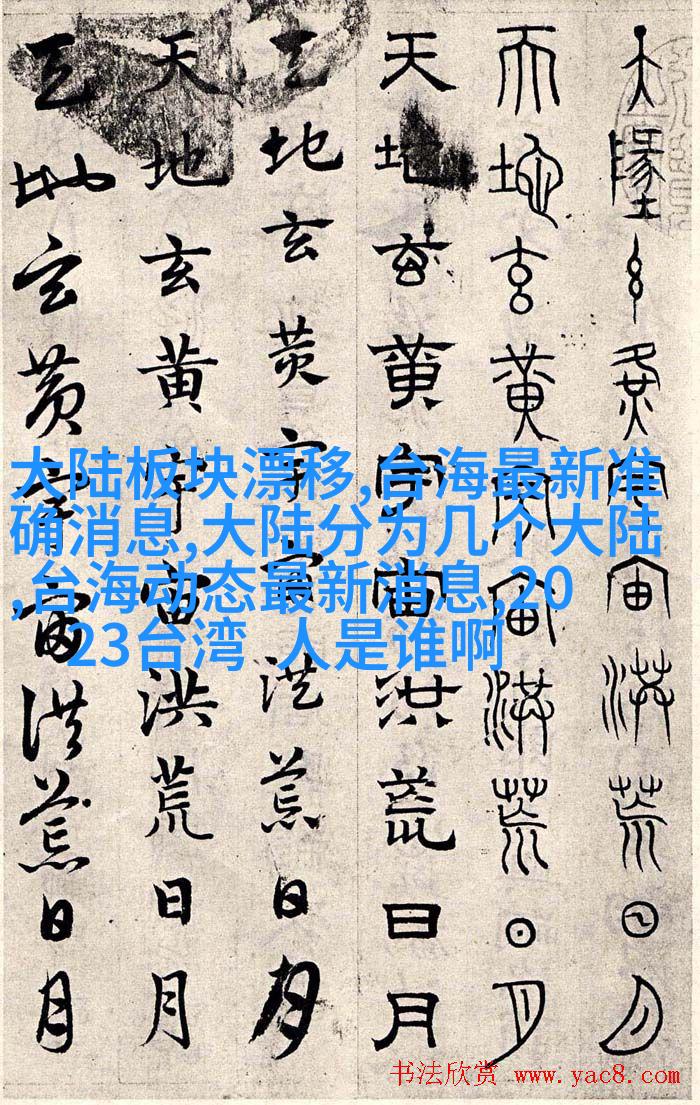 天墬玄黃宇宙洪荒日月
天地玄黃宇宙洪荒日月
天地玄黃宇宙洪荒日月
天地玄黃宇宙洪荒日月
天地玄黃宇宙洪荒日月
天地玄黃宇宙洪荒日月
大陆板块漂移,台海最新准
确消息,大陆分为几个大陆
,台海动态最新消息,20
23台湾 人是谁啊
书法欣赏 www.yac8.com